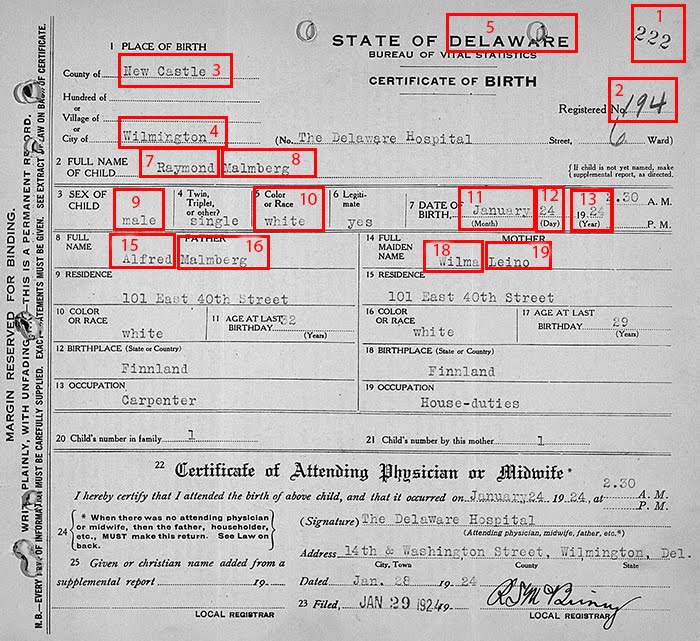 1
222
STATE OF DELAWARE 5
BUREAU OF VITAL STATISTICS
CERTIFICATE OF BIRTH
2
Registered No. 194
1 PLACE OF BIRTH
County of New Castle 3
Hundred of
or
Village of
or
City of Wilmington 4 (No. The Delaware Hospital Street, 6 Ward)
2 FULL NAME OF CHILD 7 Raymond Malmberg 8
{ If child is not yet named, make supplemental report, as directed.
3 SEX OF CHILD 9 male
4 Twin, Triplet, or other? single
5 Color or Race 10 white
6 Legiti-mate yes
7 DATE OF BIRTH, 11 January (Month) 12 24 (Day) 13 1924 (Year) 2.30 A. M. P. M.
8 FULL NAME FATHER 15 Alfred 16 Malmberg
14 FULL MAIDEN NAME MOTHER 18 Wilma 19 Leino
9 RESIDENCE
101 East 40th Street
15 RESIDENCE
101 East 40th Street
10 COLOR OR RACE white
11 AGE AT LAST BIRTHDAY 32 (Years)
16 COLOR OR RACE white
17 AGE AT LAST BIRTHDAY 29 (Years)
12 BIRTHPLACE (State or Country)
Finnland
18 BIRTHPLACE (State or Country)
Finnland
13 OCCUPATION
Carpenter
19 OCCUPATION
House-duties
20 Child's number in family 1
21 Child's number by this mother 1
22 Certificate of Attending Physician or Midwife*
2.30
I hereby certify that I attended the birth of above child, and that it occurred on January 24 1924, at A. M. P. M.
24 { * When there was no attending physician
or midwife, then the father, householder,
etc., MUST make this return. See Law on
back.
(Signature) The Delaware Hospital
(Attending physician, midwife, father, etc.*)
Address 14th & Washington Street, Wilmington, Del.
City, Town County State
25 Given or christian name added from a
supplemental report 19
LOCAL REGISTRAR
Dated Jan. 28 1924
23 Filed, JAN 29 1924 19
LOCAL REGISTRAR
MARGIN RESERVED FOR BINDING.
WRITE PLAINLY, WITH UNFADING THIS IS A PERMANENT RECORD.